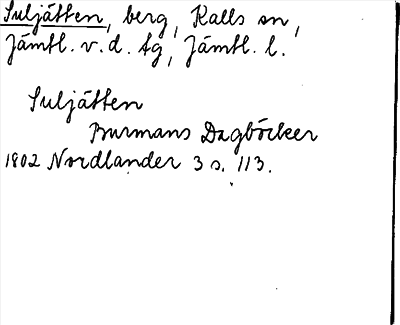 Suljätten, berg, Kalls sn,
Jämtl. v. d. tg, Jämtl. l.
Suljätten
Burmans Dagböcker
1802 Nordlander 3 s. 113.